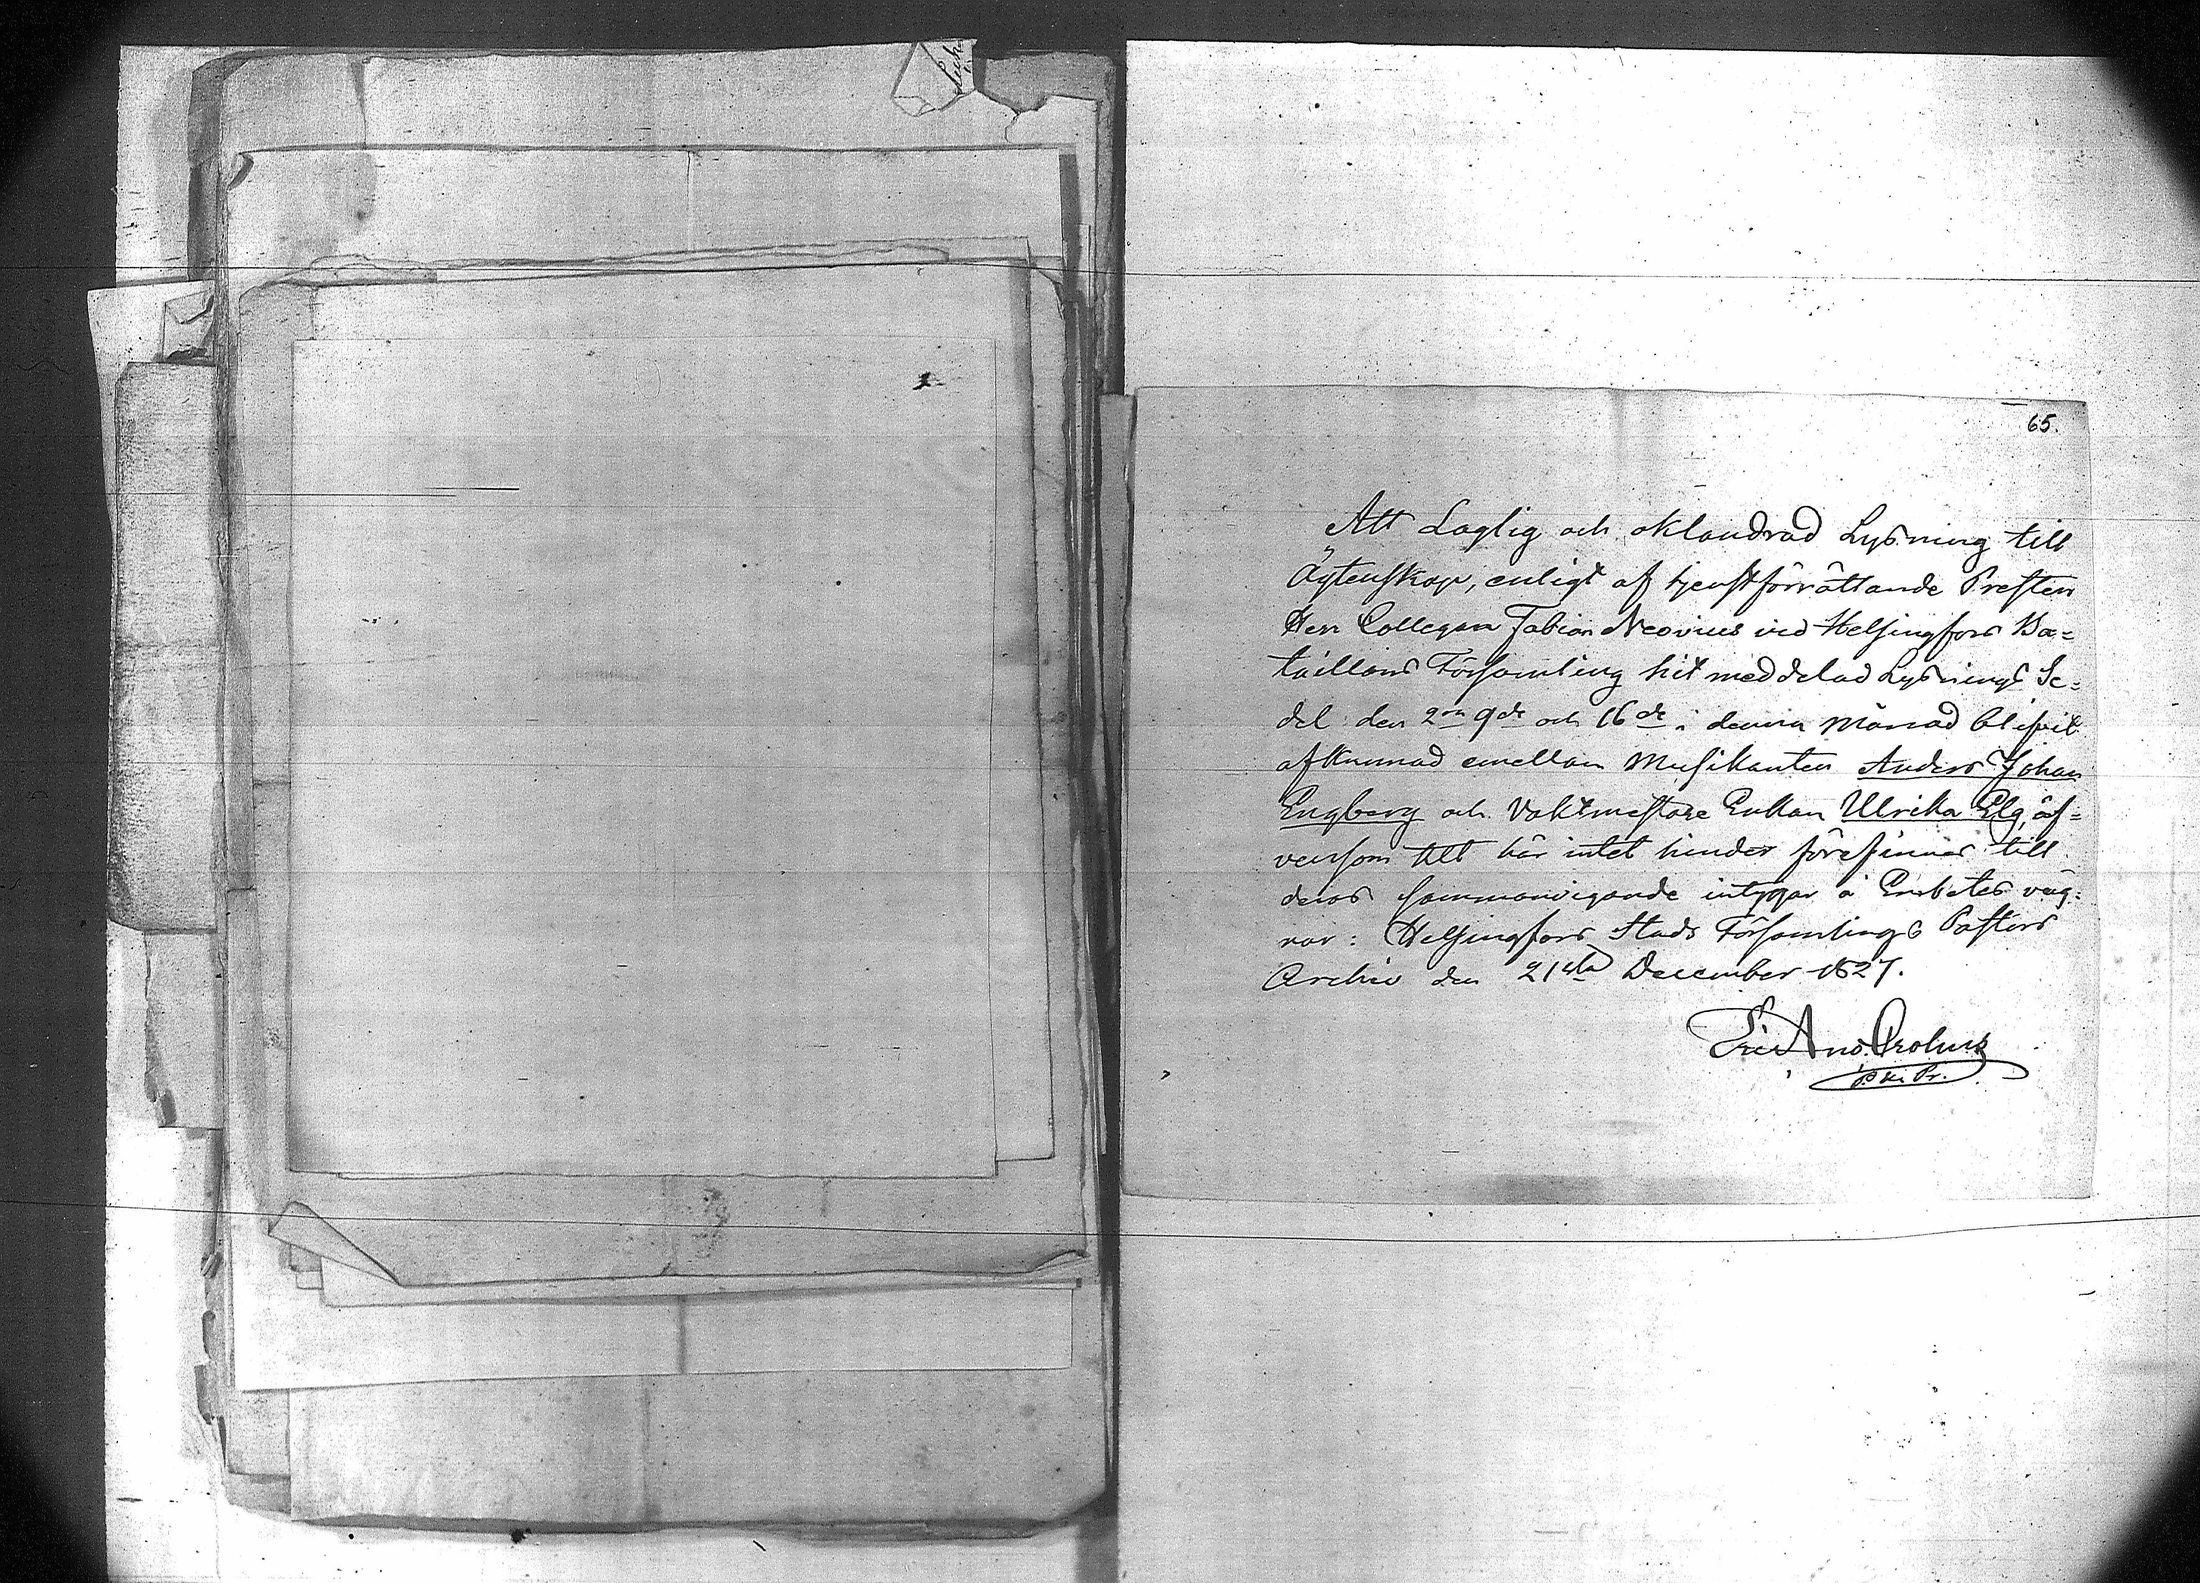 65.
Att Laglig och oklandrad Lysning till
Ägtenskap, enligt af tjenstförrättande Presten
Herr Collegan Fabian Neovius vid Helsingfors Ba=
taillons Församling hit meddelad Lysnings Se=
del den 2n 9de och 16de i denna Månad blifvit
afkunnad emellan Musikanten Anders Johan
Engberg och Vaktmestare Enkan Ulrika Elg, äf=
vensom att här intet hinder förefinnes till
deras sammanvigande intygar å Embetes väg=
nar: Helsingfors Stads Församlings Pastors
Archiv den 21sta December 1827.